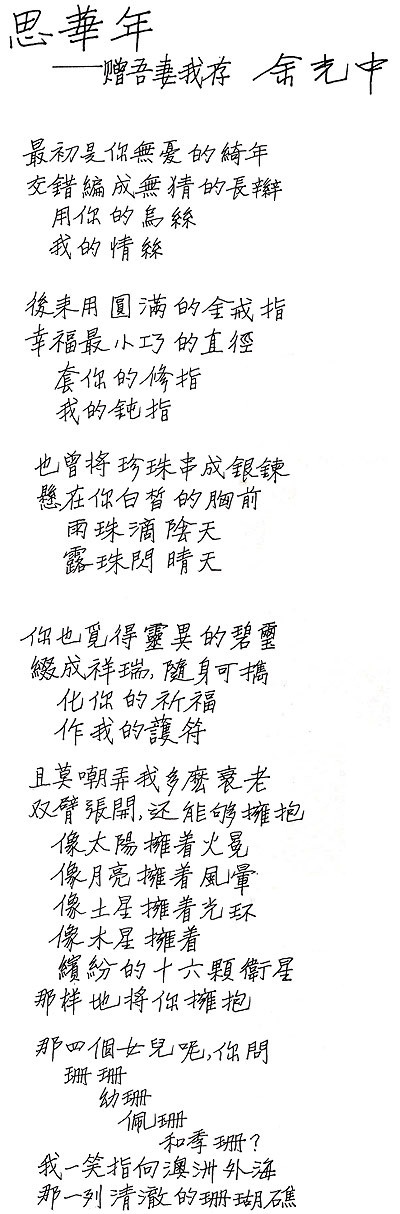 思華年
——赠吾妻我存 余光中
最初是你無憂的綺年
交錯編成無猜的長辮
用你的烏絲
我的情絲
後来用圓滿的金戒指
幸福最小巧的直徑
套你的修指
我的鈍指
也曾将珍珠串成銀鍊
懸在你白皙的胸前
雨珠滴陰天
露珠閃晴天
你也覓得靈異的碧璽
綴成祥瑞,隨身可攜
化你的祈福
作我的護符
且莫嘲弄我多麼衰老
双臂張開,还能够擁抱
像太陽擁着火冕
像月亮擁着風暈
像土星擁着光环
像木星擁着
繽紛的十六顆衛星
那样地将你擁抱
那四個女兒呢,你問
珊珊
幼珊
佩珊
和季珊?
我一笑指向澳洲外海
那一列清澈的珊瑚礁